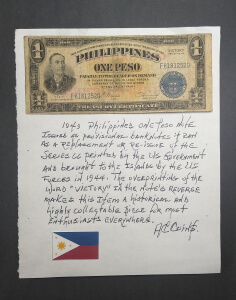 PHILIPPINES
ONE PESO
F61812520
1943 Philippines one peso note
issued as provisional banknotes it ran
as a replacement or re-issue of the
Series 66 printed by the US Government
and brought to the Islands by the US
Forces in 1944. The overprinting of the
word "VICTORY" in the note's reverse
makes this item a historical and
highly collectable since for most
enthusiasts everywhere.